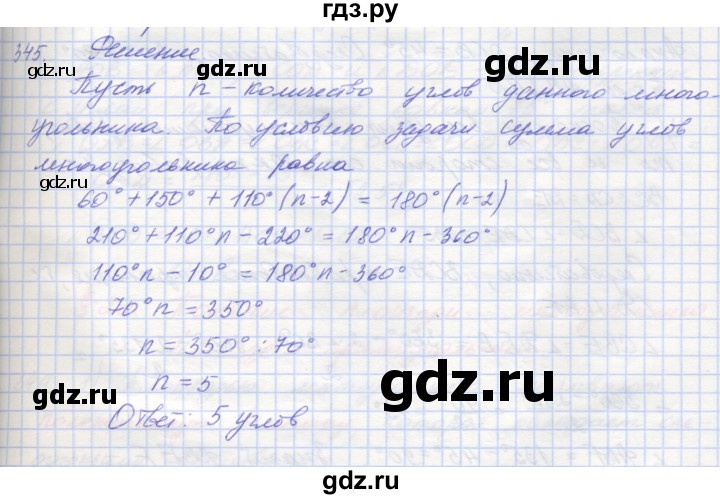 гдз.ру
345. Решение
Пусть n - количество углов данного много-
угольника. По условию задачи сумма углов
многоугольника равна
60° + 150° + 110° (n-2) = 180° (n-2)
210° + 110°n - 220° = 180°n - 360°
110°n - 10° = 180°n - 360°
70°n = 350°
n = 350° : 70°
n = 5
Ответ: 5 углов
gdz.ru
gdz.ru
gdz.ru
gdz.ru
gdz.ru
gdz.ru
gdz.ru